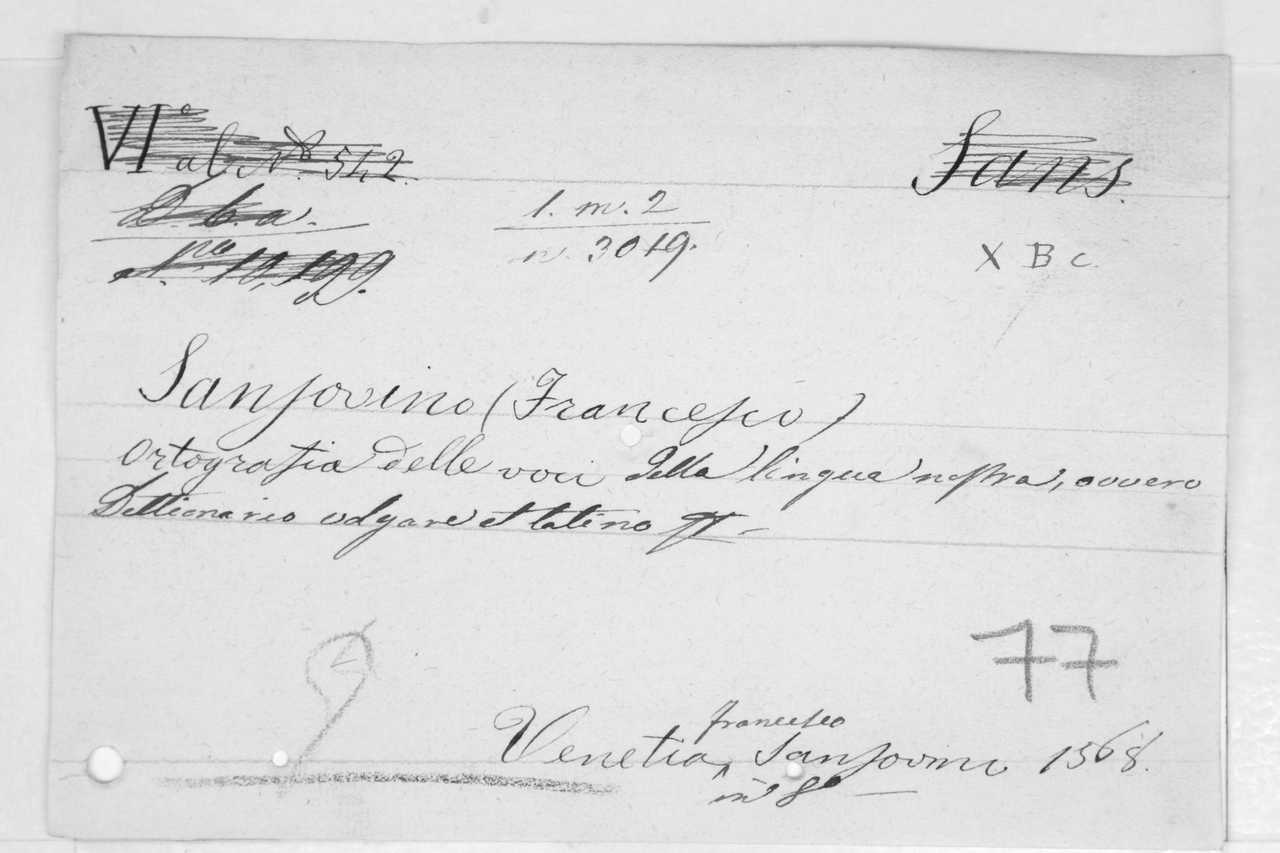 VIº al Nº 542.
Sans.
D. b. a.
Nro 10,199.
1. m. 2
n. 3019.
X B c.
Sansovino (Francesco)
Ortografia delle voci della lingua nostra, ovvero
Dittionario volgare et latino
77
Venetia, francesco Sansovino 1568.
in 8º —